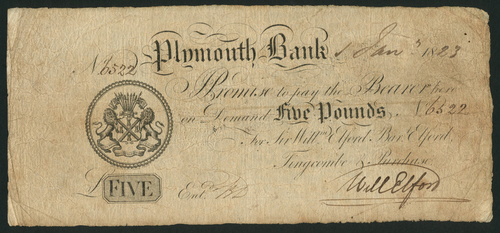 Plymouth Bank 1 Jany 1823
No 6522
I Promise to pay the Bearer here
on Demand Five Pounds No 6522
For Sir Willm Elford Bart Elford
Tingcombe & Purchase
£ FIVE
Entd
Will Elford